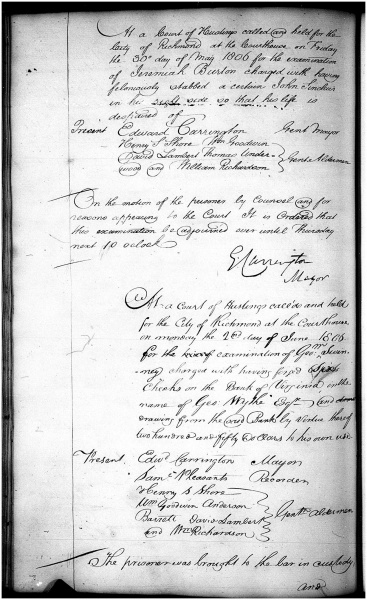 At a Court of Hustings called and held for the
City of Richmond at the Courthouse on Friday
the 30th day of May 1806 for the examination
of Jeremiah Burton charged with having
feloniously stabbed a certain John Sinclair
in the right side so that his life is
despaired of
Present Edward Carrington Gent Mayor
Henry S Shore Wm Goodwin
David Lambert Thomas Under
wood and William Richardson Gents Aldermen
On the motion of the prisoner by Counsel and for
reasons appearing to the Court It is ordered that
this examination be adjourned over until Thursday
next 10 oClock
E Carrington
Mayor
At a Court of Hustings called and held
for the City of Richmond at the Courthouse
on monday the 2d day of June 1806
for the examination of Geo: Swin
ney charged with having forged
Checks on the Bank of Virginia in the
name of Geo: Wythe Esqr. and
drawing from the said Bank by virtue thereof
two hundred and fifty dollars to his own use.
Present Edwd Carrington Mayor
Saml Pleasants Recorder
Henry S Shore
Wm Goodwin Anderson
Barrett David Lambert
and Wm Richardson Gentn Aldermen
The prisoner was brought to the bar in custody
and